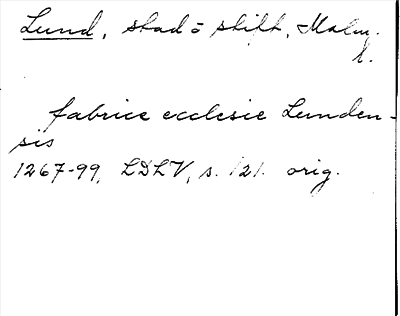 Lund, stad o stift, Malm.
h.
fabrice ecclesie Lunden-
sis
1267-99, LDLV, s. 121. orig.